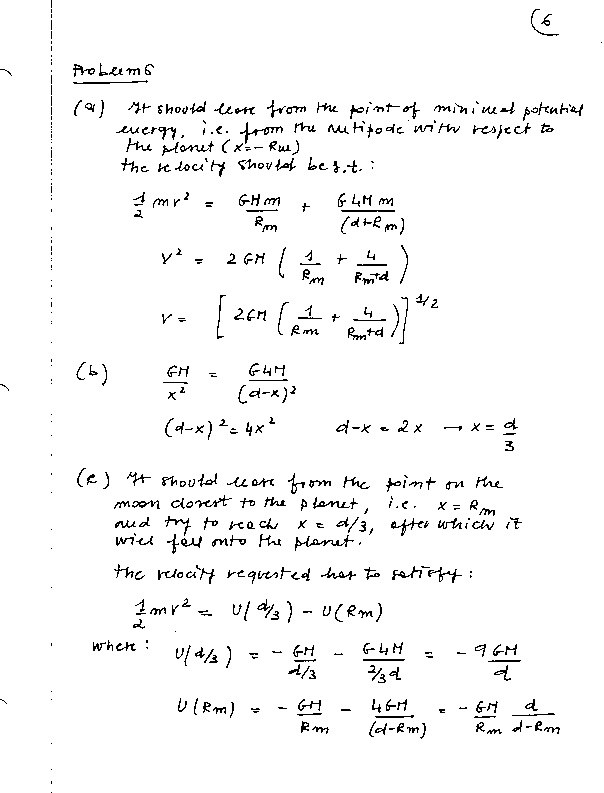 (6
Problem 6
(a) It should leave from the point of minimal potential
energy, i.e. from the antipode with respect to
the planet (x = - Rm)
the velocity should be s.t. :
1/2 mv² = GMm/Rm + G4Mm/(d+Rm)
V² = 2GM ( 1/Rm + 4/(Rm+d) )
V = [ 2GM ( 1/Rm + 4/(Rm+d) ) ]^1/2
(b) GM/x² = G4M/(d-x)²
(d-x)² = 4x² d-x = 2x → x = d/3
(c) It should leave from the point on the
moon closest to the planet, i.e. x = Rm
and try to reach x = d/3, after which it
will fall onto the planet.
the velocity requested has to satisfy :
1/2 mv² = U(d/3) - U(Rm)
where : U(d/3) = - GM/(d/3) - G4M/(2/3 d) = - 9GM/d
U(Rm) = - GM/Rm - 4GM/(d-Rm) = - GM/Rm d/(d-Rm)